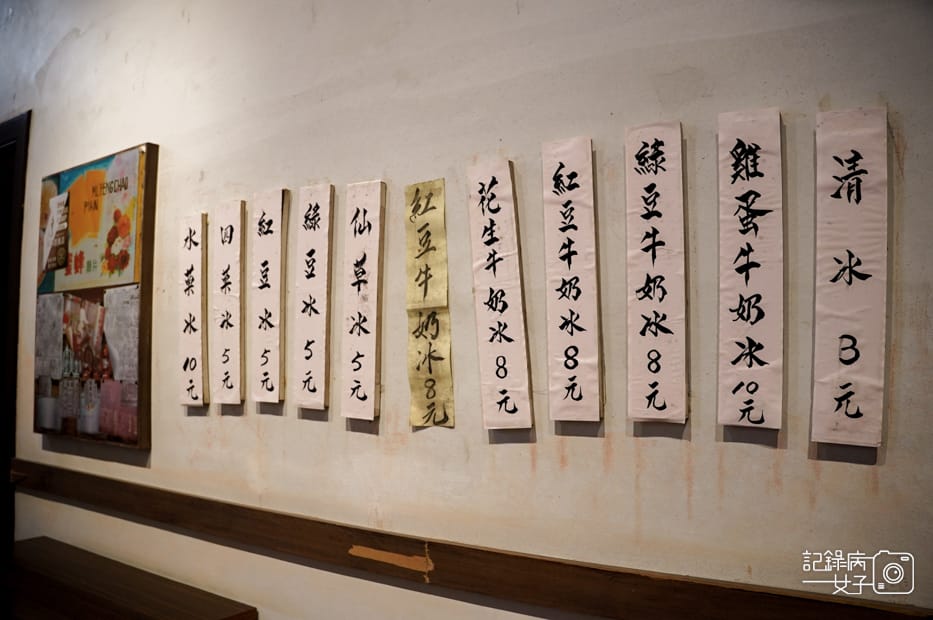 清冰3元
雞蛋牛奶冰10元
綠豆牛奶冰8元
紅豆牛奶冰8元
花生牛奶冰8元
紅豆牛奶冰8元
仙草冰5元
綠豆冰5元
紅豆冰5元
四菓冰5元
水菓冰10元
MLTENGCHAO
PIAN
記錄病
女子